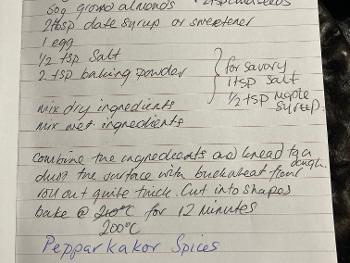 50g ground almonds
2tbsp date syrup or sweetener
1 egg
1/2 tsp Salt
2 tsp baking powder
for savary
1 tsp salt
1/2 tsp maple
syreep.
mix dry ingredients
mix wet ingredients
combine the ingredeants and knead to a
dough.
dust the surface with buckwheat flour
roll out quite thick. Cut into shapes
bake @ 210°C for 12 minutes
200°C
Pepparkakor Spices